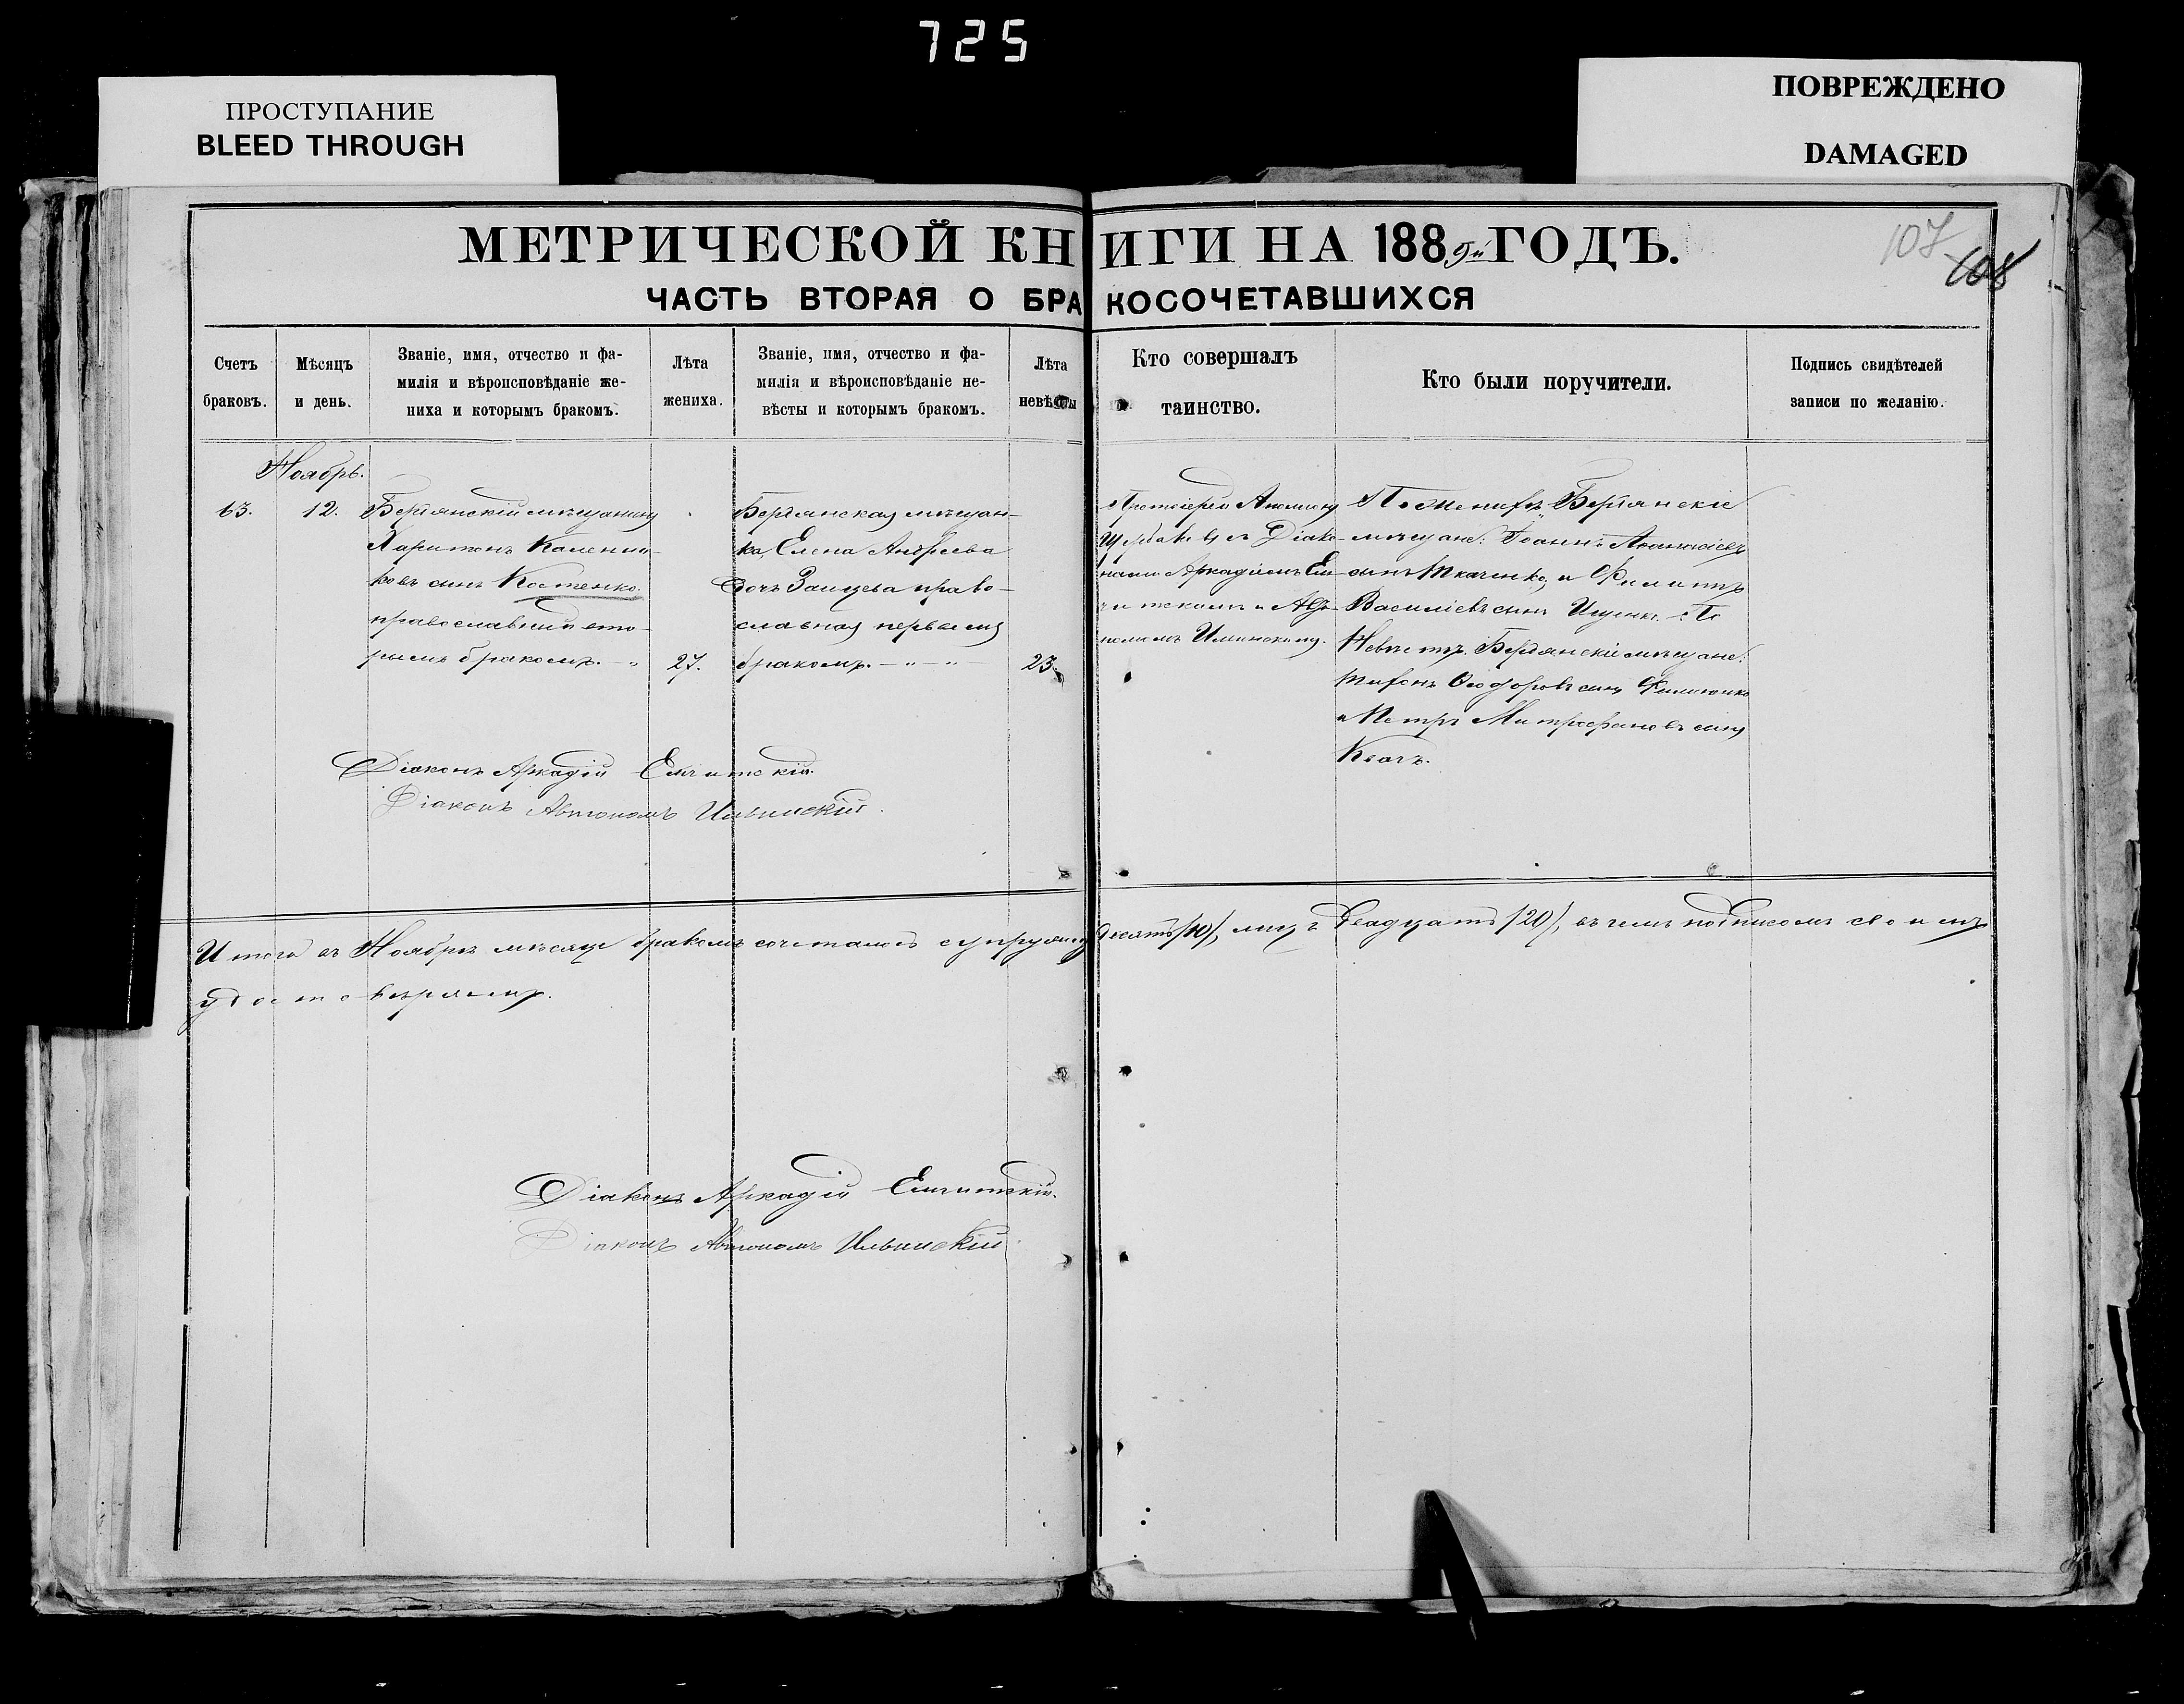 725
ПРОСТУПАНИЕ
BLEED THROUGH
ПОВРЕЖДЕНО
DAMAGED
МЕТРИЧЕСКОЙ КНИГИ НА 1889й ГОДЪ.
107
108
ЧАСТЬ ВТОРАЯ О БРАКОСОЧЕТАВШИХСЯ
Счетъ
браковъ.
Мѣсяцъ
и день.
Званіе, имя, отчество и фа-
милія и вѣроисповѣданіе же-
ниха и которымъ бракомъ.
Лѣта
жениха.
Званіе, имя, отчество и фа-
милія и вѣроисповѣданіе не-
вѣсты и которымъ бракомъ.
Лѣта
невѣсты
Кто совершалъ
таинство.
Кто были поручители.
Подпись свидѣтелей
записи по желанію.
Ноябрь.
63.
12.
Бердянскій мѣщанинъ
Харитонъ Калинни-
ковъ сынъ Костенко.
православный вто-
рымъ бракомъ.
27.
Бердянская мѣщан-
ка, Елена Андреева
дочь Заицева право-
славная первымъ
бракомъ.
23.
Протоіерей
съ Діако-
нами Аркадіемъ
и Авто-
номомъ Ильинскимъ.
По женихѣ: Бердянскіе
мѣщане: Іоаннъ Аѳанасіевъ
сынъ Ткаченко, и Филиппъ
Василіевъ сынъ Ищенко. По
Невѣстѣ: Бердянскіе мѣщане:
Тифонъ Ѳеодоровъ сынъ
и Петръ Митрофановъ сынъ
Квачъ.
Діаконъ Аркадій
Діаконъ Автономъ Ильинскій.
Итого въ Ноябрѣ мѣсяцѣ бракомъ сочеталось супруж. десять /10/, лицъ двадцать /20/, въ чемъ подписомъ своимъ
удостовѣряемъ.
Діаконъ Аркадій
Діаконъ Автономъ Ильинскій.